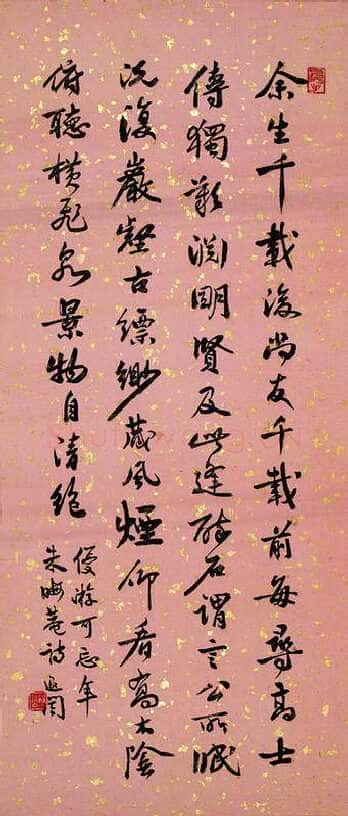 余生千載後尚友千載前每尋高士
傳獨歎渊明賢及此逢醉石謂言公所眠
況復巖壑古縹緲藏風煙仰看喬木陰
俯聽橫飛泉景物自清絕
優游可忘年
朱晦菴詩 延闓